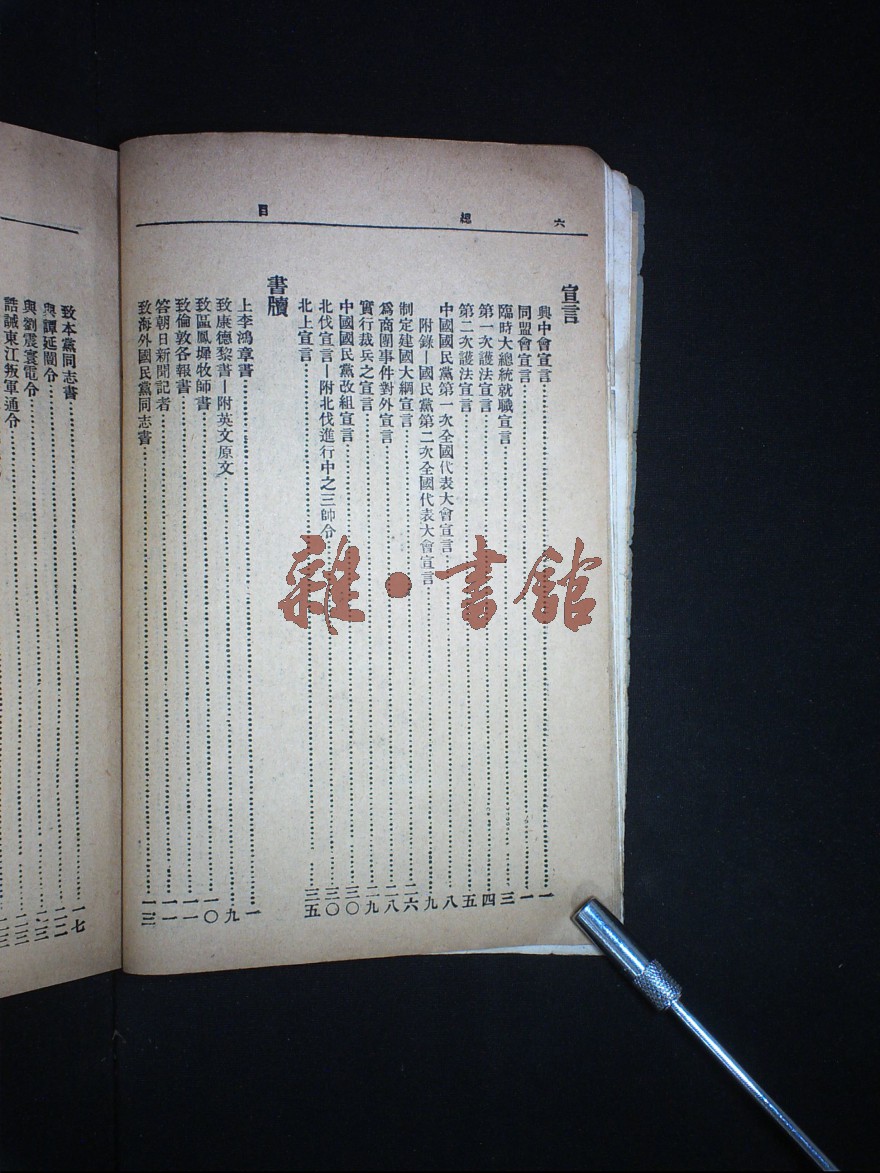 六 總目
宣言
興中會宣言……一
同盟會宣言……一
臨時大總統就職宣言……三
第一次護法宣言……四
第二次護法宣言……五
中國國民黨第一次全國代表大會宣言……八
附錄—國民黨第二次全國代表大會宣言……九
制定建國大綱宣言……二六
爲商團事件對外宣言……二八
實行裁兵之宣言……二九
中國國民黨改組宣言……三〇
北伐宣言—附北伐進行中之三帥令……三〇
北上宣言……三五
書牘
上李鴻章書……一
致康德黎書—附英文原文……九
致區鳳墀牧師書……一〇
致倫敦各報書……一一
答朝日新聞記者……一一
致海外國民黨同志書……一三
致本黨同志書……一七
與譚延闓令……二二
與劉震寰電令……二三
誥誡東江叛軍通令……二三
雜·書館